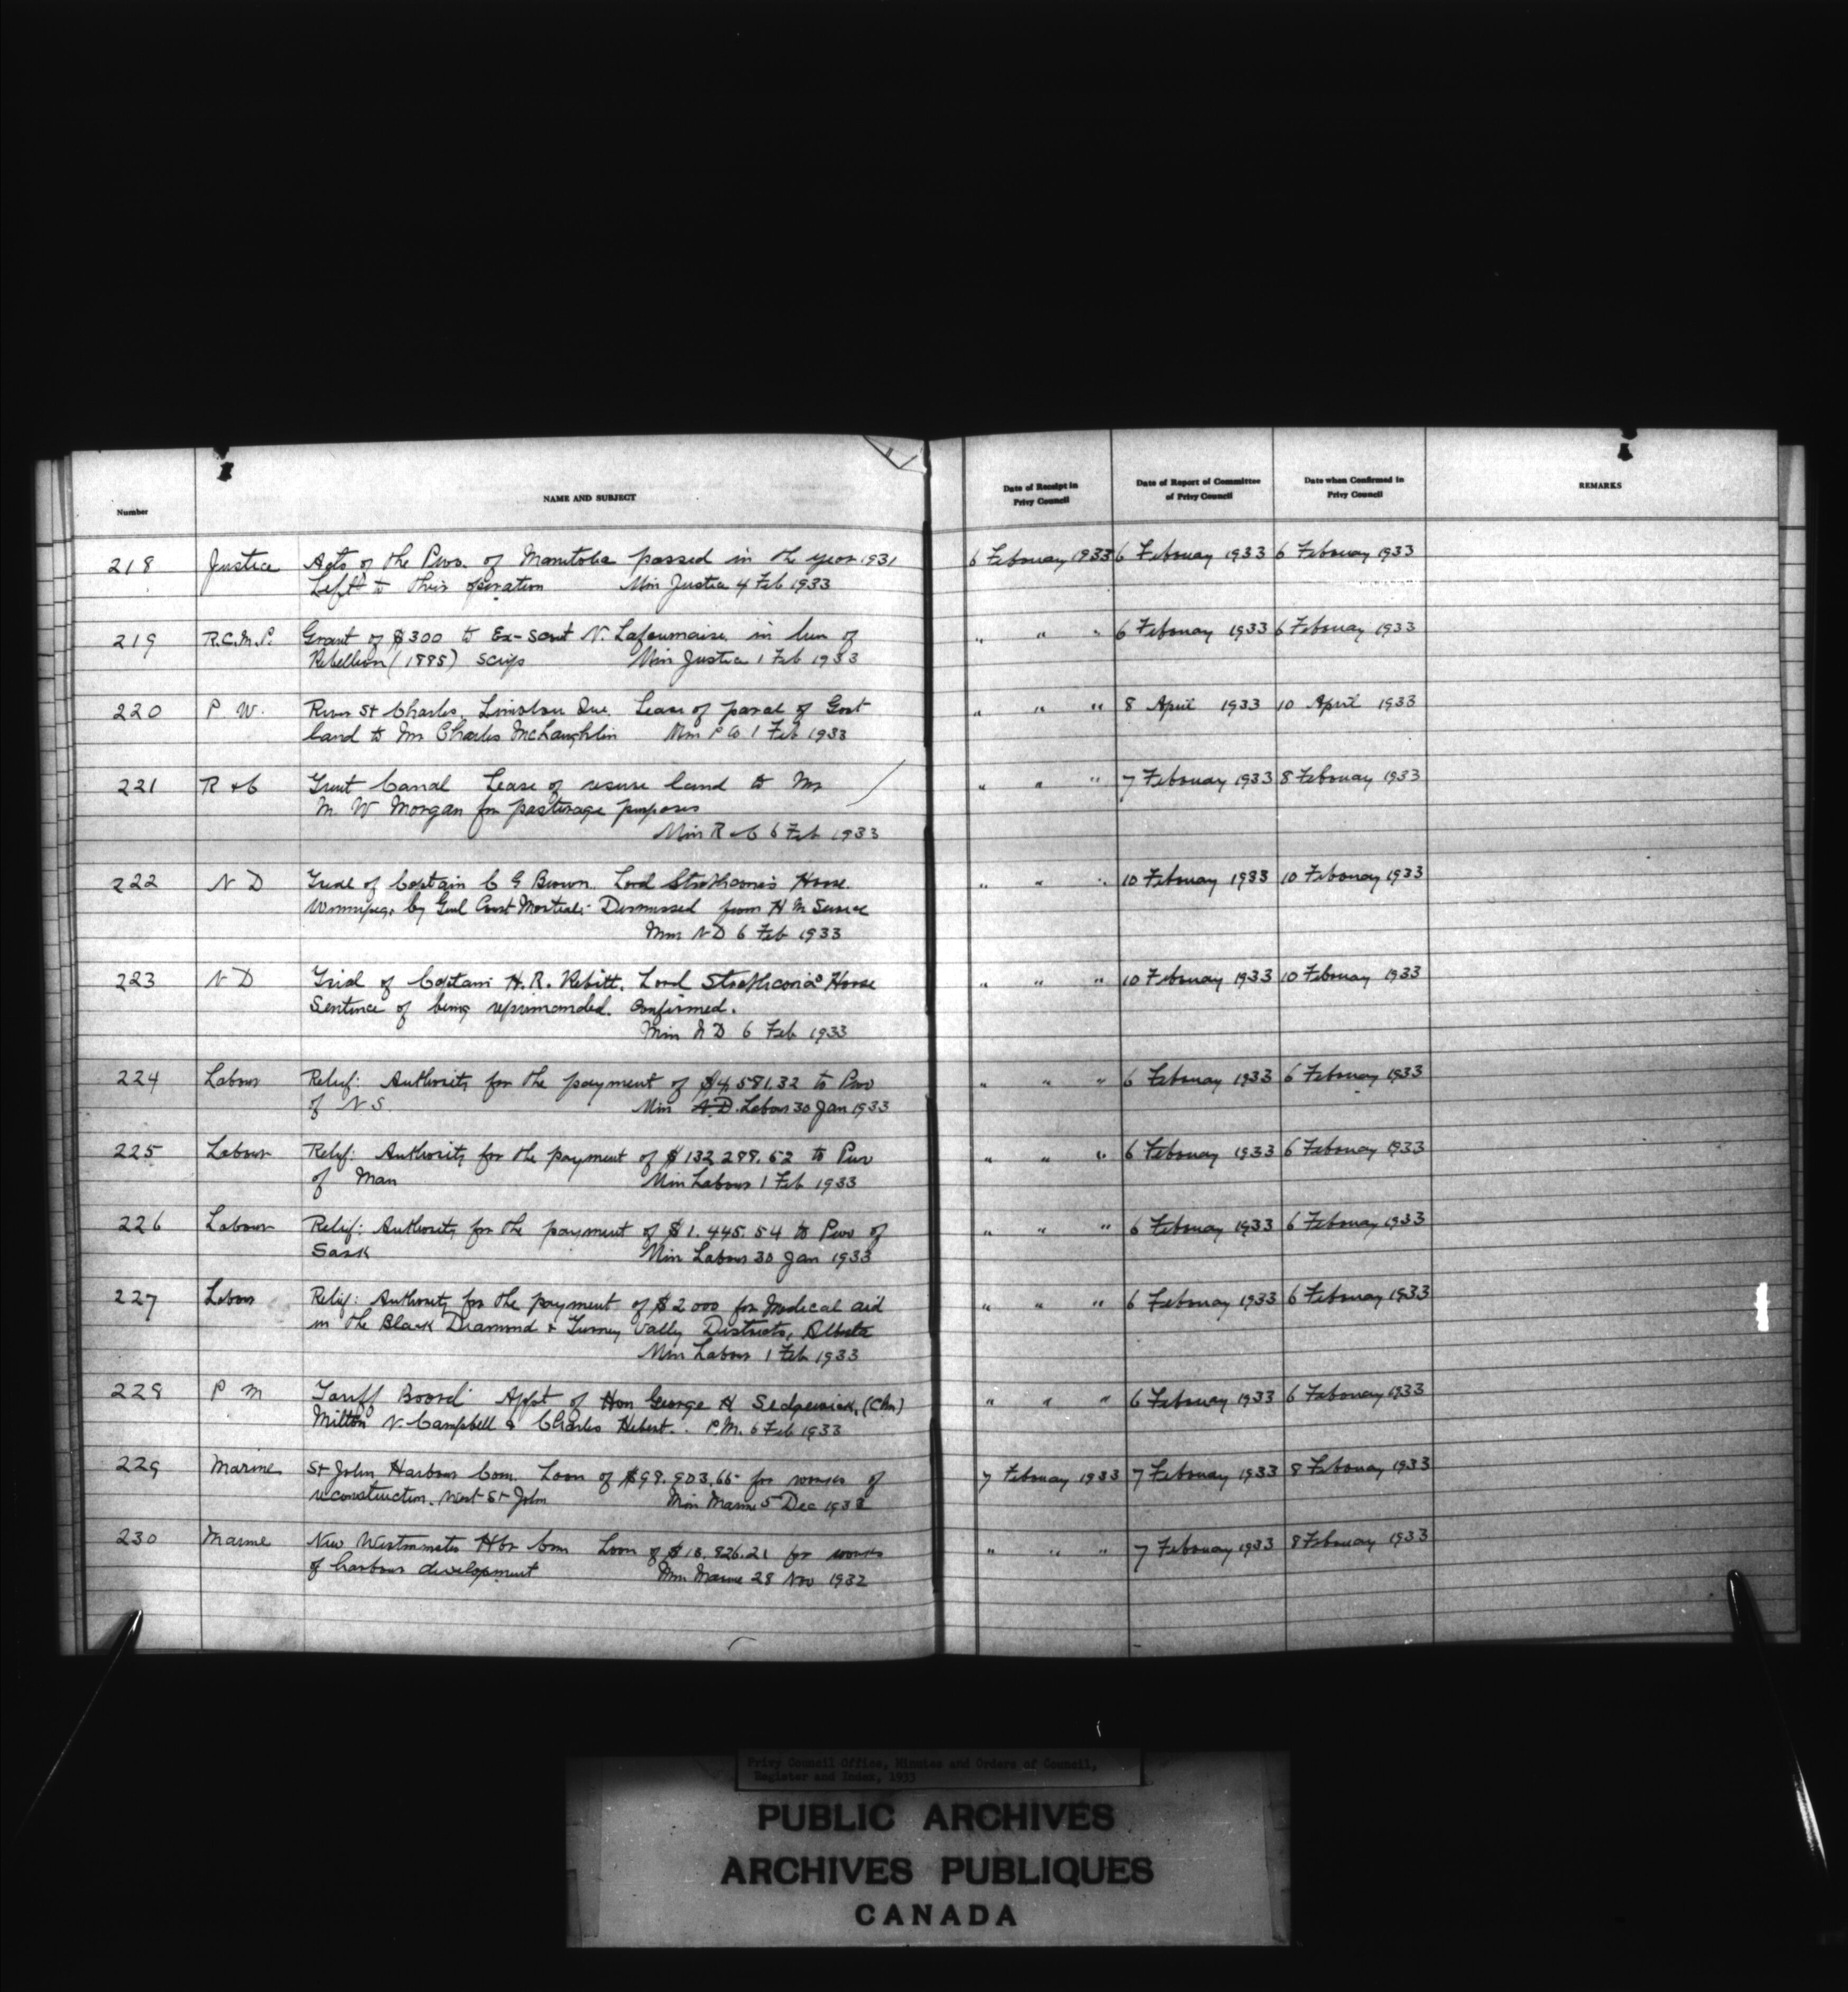 Number
NAME AND SUBJECT
Date of Receipt in
Privy Council
Date of Report of Committee
of Privy Council
Date when Confirmed in
Privy Council
REMARKS
218 Justice Acts of the Prov. of Manitoba passed in the year 1931 6 February 1933 6 February 1933 6 February 1933
Left to their operation Min Justice 4 Feb 1933
219 R.C.M.P. Grant of $300 to Ex-Scout N. Lafournaise in lieu of " " " 6 February 1933 6 February 1933
Rebellion (1885) Scrip Min Justice 1 Feb 1933
220 P. W. River St Charles, Limoilou Que. Lease of parcel of Govt " " " 8 April 1933 10 April 1933
land to Mr Charles McLaughlin Min P W 1 Feb 1933
221 R & C Trent Canal Lease of reserve land to Mr " " " 7 February 1933 8 February 1933
M. W Morgan for pasturage purposes
Min R & C 6 Feb 1933
222 N D Trial of Captain C G Brown. Lord Strathcona's Horse. " " " 10 February 1933 10 February 1933
Winnipeg, by Genl Court Martial: Dismissed from H M Service
Min N D 6 Feb 1933
223 N D Trial of Captain H. R. Lord Strathcona's Horse " " " 10 February 1933 10 February 1933
Sentence of being reprimanded. Confirmed.
Min N D 6 Feb 1933
224 Labour Relief: Authority for the payment of $4,581.32 to Prov " " " 6 February 1933 6 February 1933
of N S. Min N.D. Labour 30 Jan 1933
225 Labour Relief: Authority for the payment of $132 299.52 to Prov " " " 6 February 1933 6 February 1933
of Man Min Labour 1 Feb 1933
226 Labour Relief: Authority for the payment of $1.445.54 to Prov of " " " 6 February 1933 6 February 1933
Sask Min Labour 30 Jan 1933
227 Labour Relief: Authority for the payment of $2 000 for Medical aid " " " 6 February 1933 6 February 1933
in the Black Diamond & Turney Vally Districts, Alberta
Min Labour 1 Feb 1933
228 P M Tariff Board Appt of Hon George H Sedgewick, (Chn) " " " 6 February 1933 6 February 1933
Milton N. Campbell & Charles Hebert. P.M. 6 Feb 1933
229 Marine St John Harbour Com. Loan of $98.903.65 for works of 7 February 1933 7 February 1933 8 February 1933
reconstruction. West St John Min Marine 5 Dec 1932
230 Marine New Westminster Hbr Com Loan of $18.826.21 for works " " " 7 February 1933 8 February 1933
of harbour development Min Marine 28 Nov 1932
Privy Council Office, Minutes and Orders of Council,
Register and Index, 1933
PUBLIC ARCHIVES
ARCHIVES PUBLIQUES
CANADA